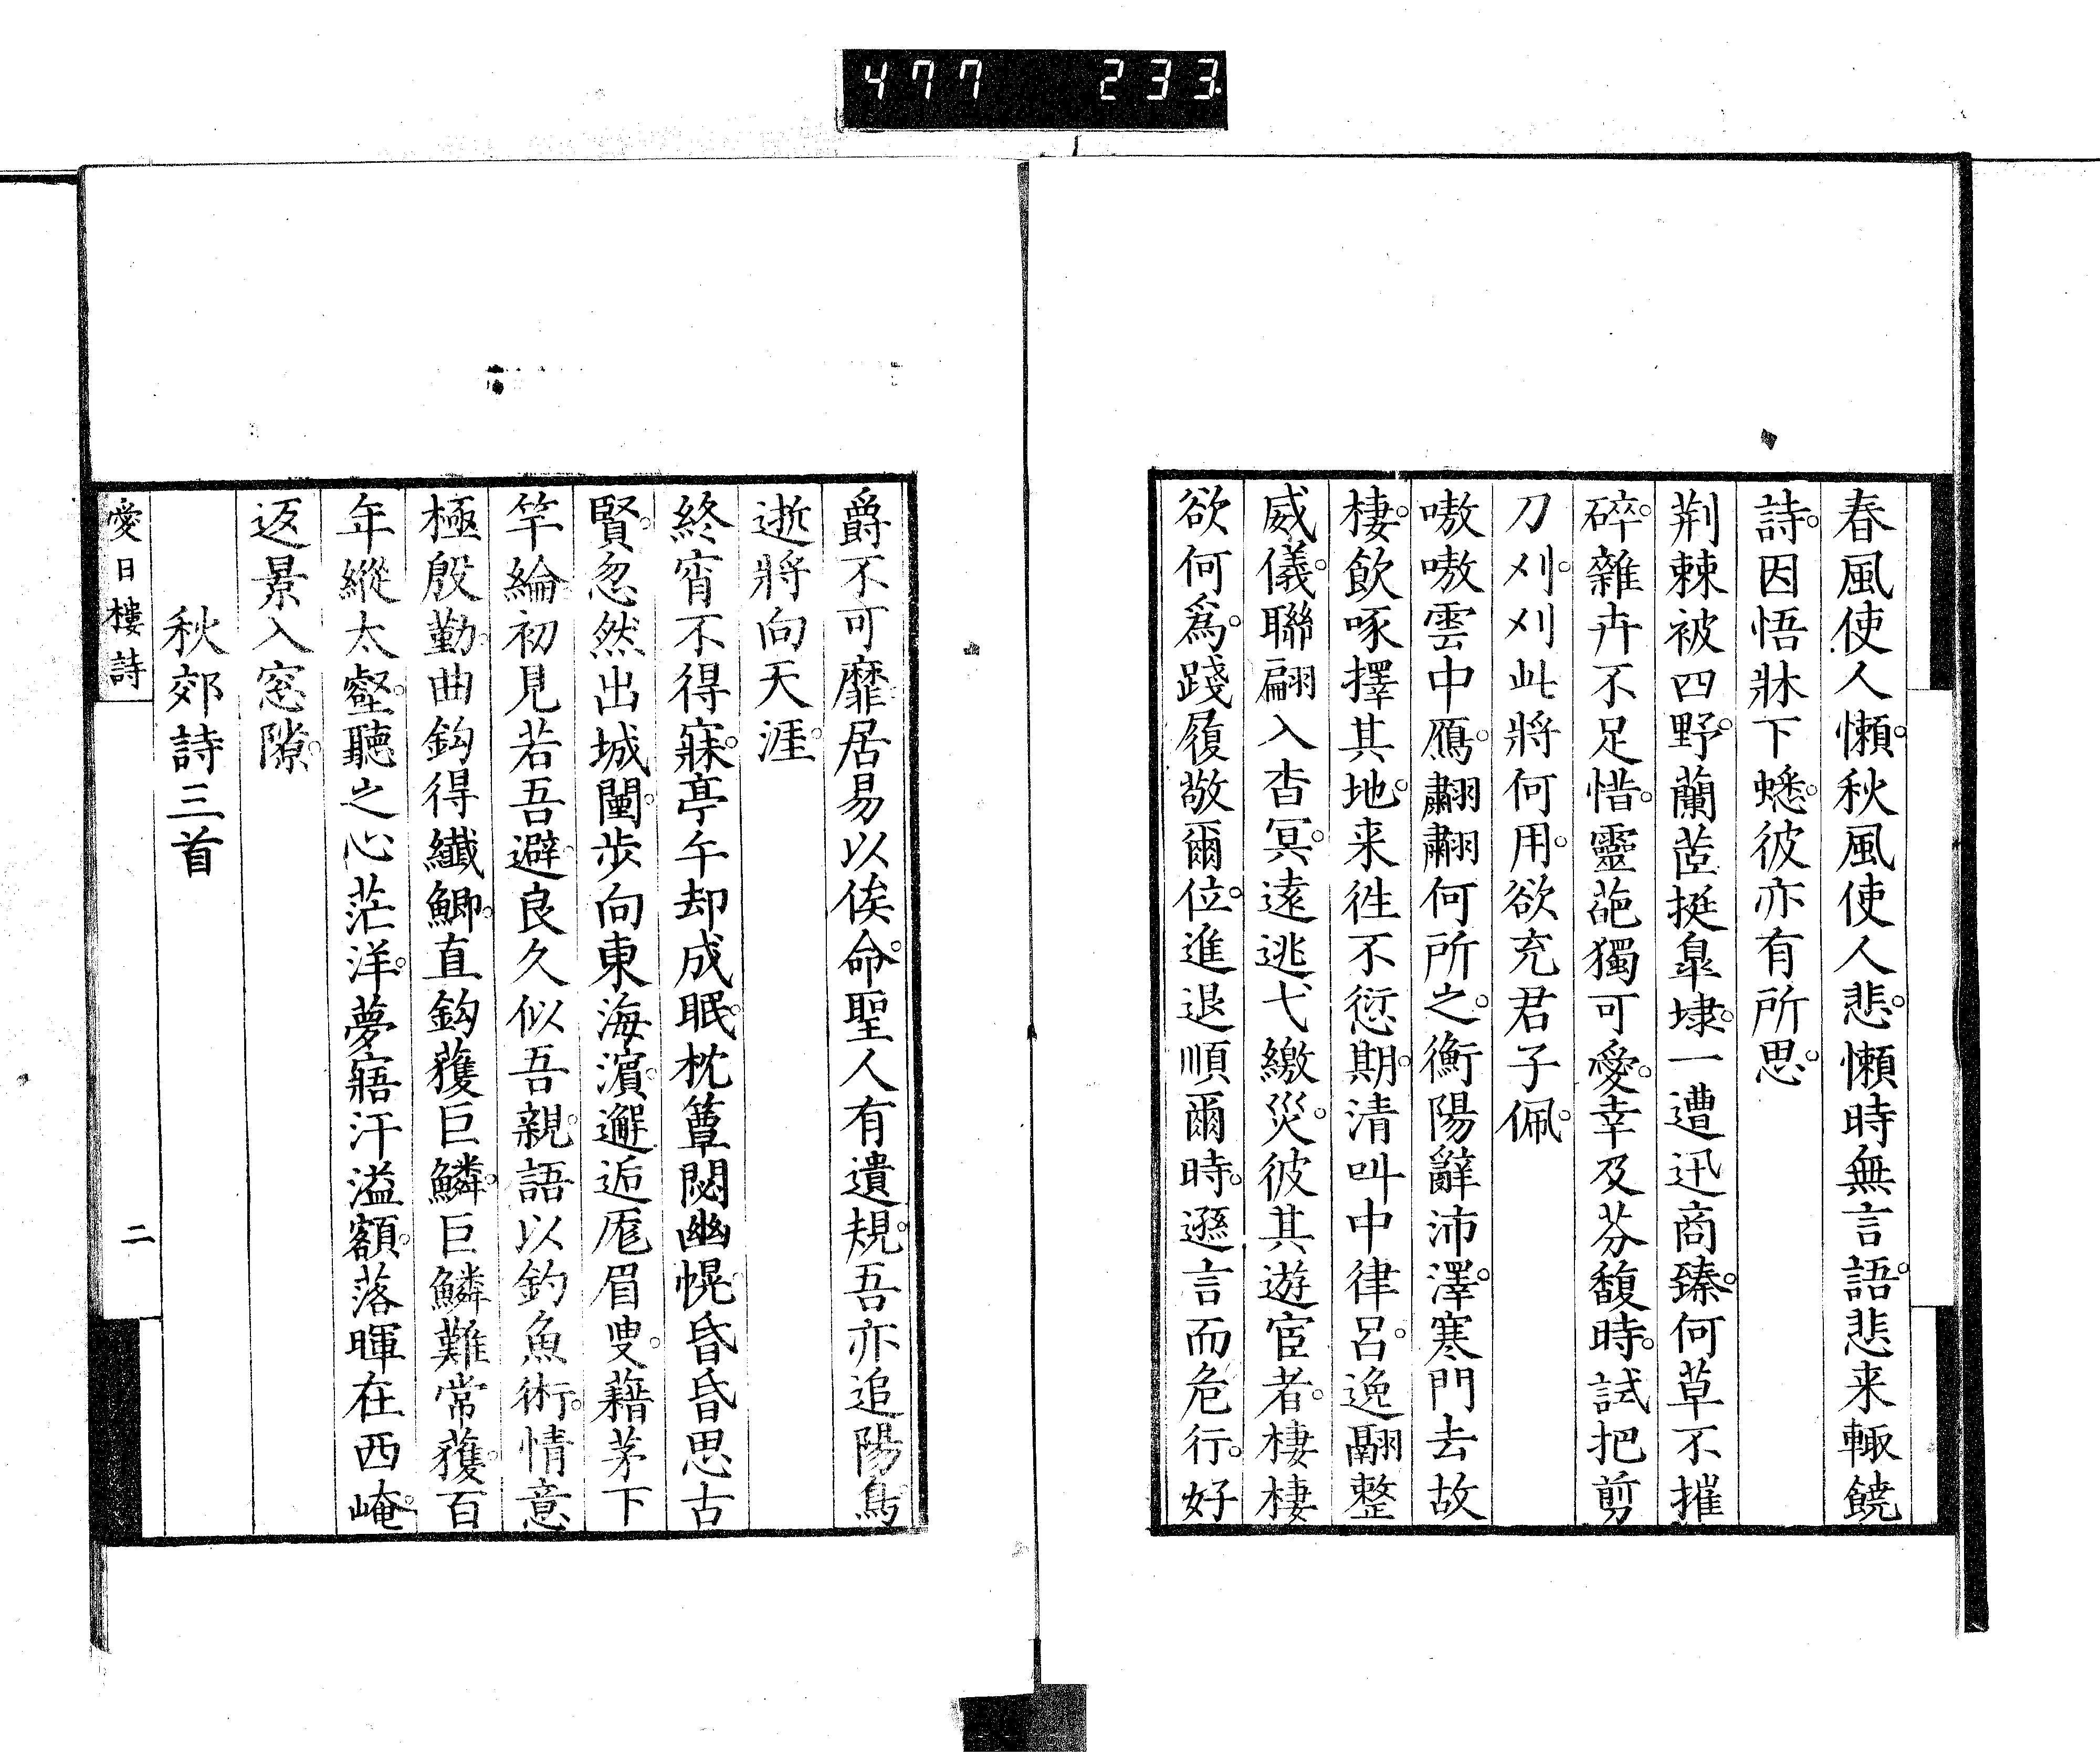 477 233
春風使人懶。秋風使人悲。懶時無言語。悲来輙饒
詩。因悟牀下蟋。彼亦有所思。
荆棘被四野。蘭茝挺皐埭。一遭迅商臻。何草不摧
碎。雜卉不足惜。靈葩獨可愛。幸及芬馥時。試把剪
刀刈。刈此將何用。欲充君子佩。
嗷嗷雲中鴈。翽翽何所之。衡陽辭沛澤。寒門去故
棲。飲啄擇其地。来徃不愆期。清叫中律呂。逸翮整
威儀。聯翩入杳冥。遠逃弋繳災。彼其遊宦者。棲棲
欲何爲。踐履敬爾位。進退順爾時。遜言而危行。好
爵不可靡。居易以俟命。聖人有遺規。吾亦追陽鳥
逝將向天涯。
終宵不得寐。亭午却成眠。枕簟閟幽幌。昏昏思古
賢。忽然出城闉。步向東海濵。邂逅厖眉叟。藉茅下
竿綸。初見若吾避。良久似吾親。語以釣魚術。情意
極殷勤。曲鈎得纎鯽。直鈎獲巨鱗。巨鱗難常獲。百
年縱太壑。聽之心茫洋。夢寤汗溢額。落暉在西崦。
返景入窓隙。
秋郊詩三首
愛日樓詩
二